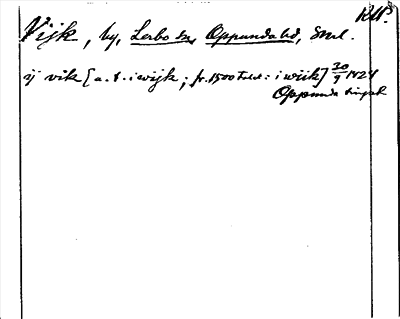 RAP.
Vijk, by, Lerbo sn, Oppunda hd, Srml.
ij vik [a. t. i wijk; fr. 1500 talet: i wiik] 20/9 1424
Oppunda tingsb